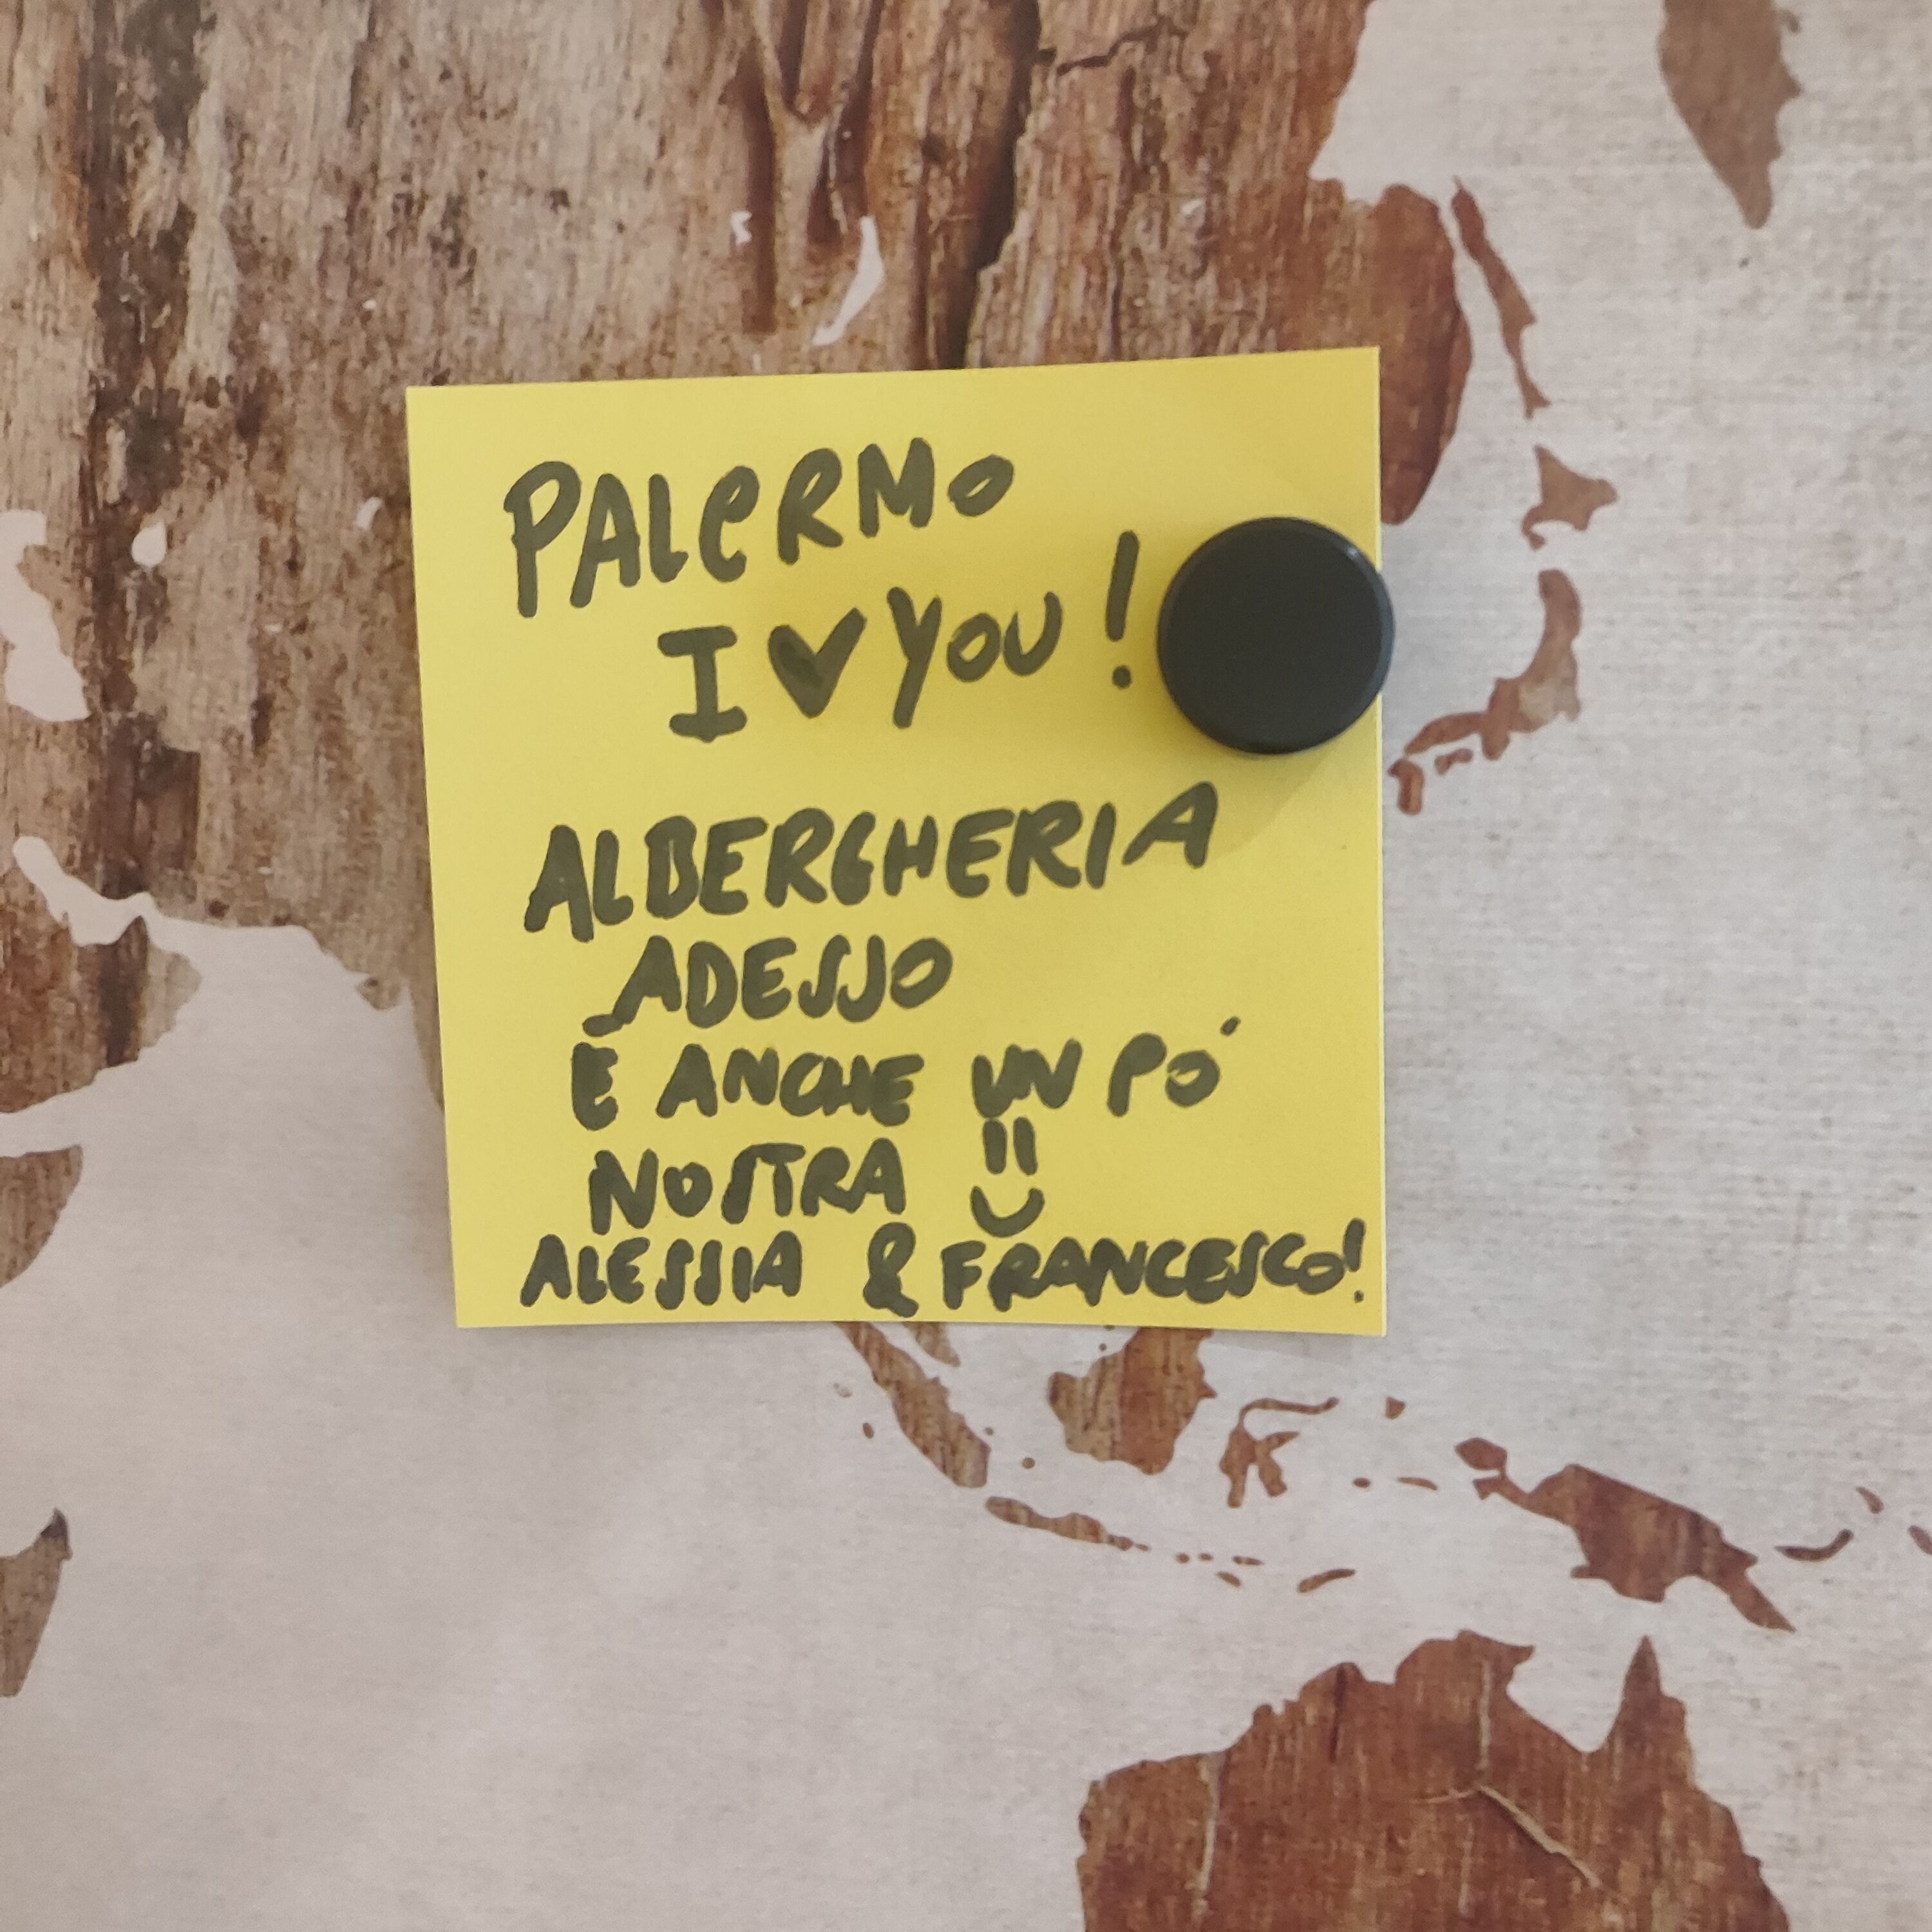 PALERMO
I ♥ YOU !
ALBERGHERIA
ADESSO
È ANCHE UN PO'
NOSTRA
ALESSIA & FRANCESCO!